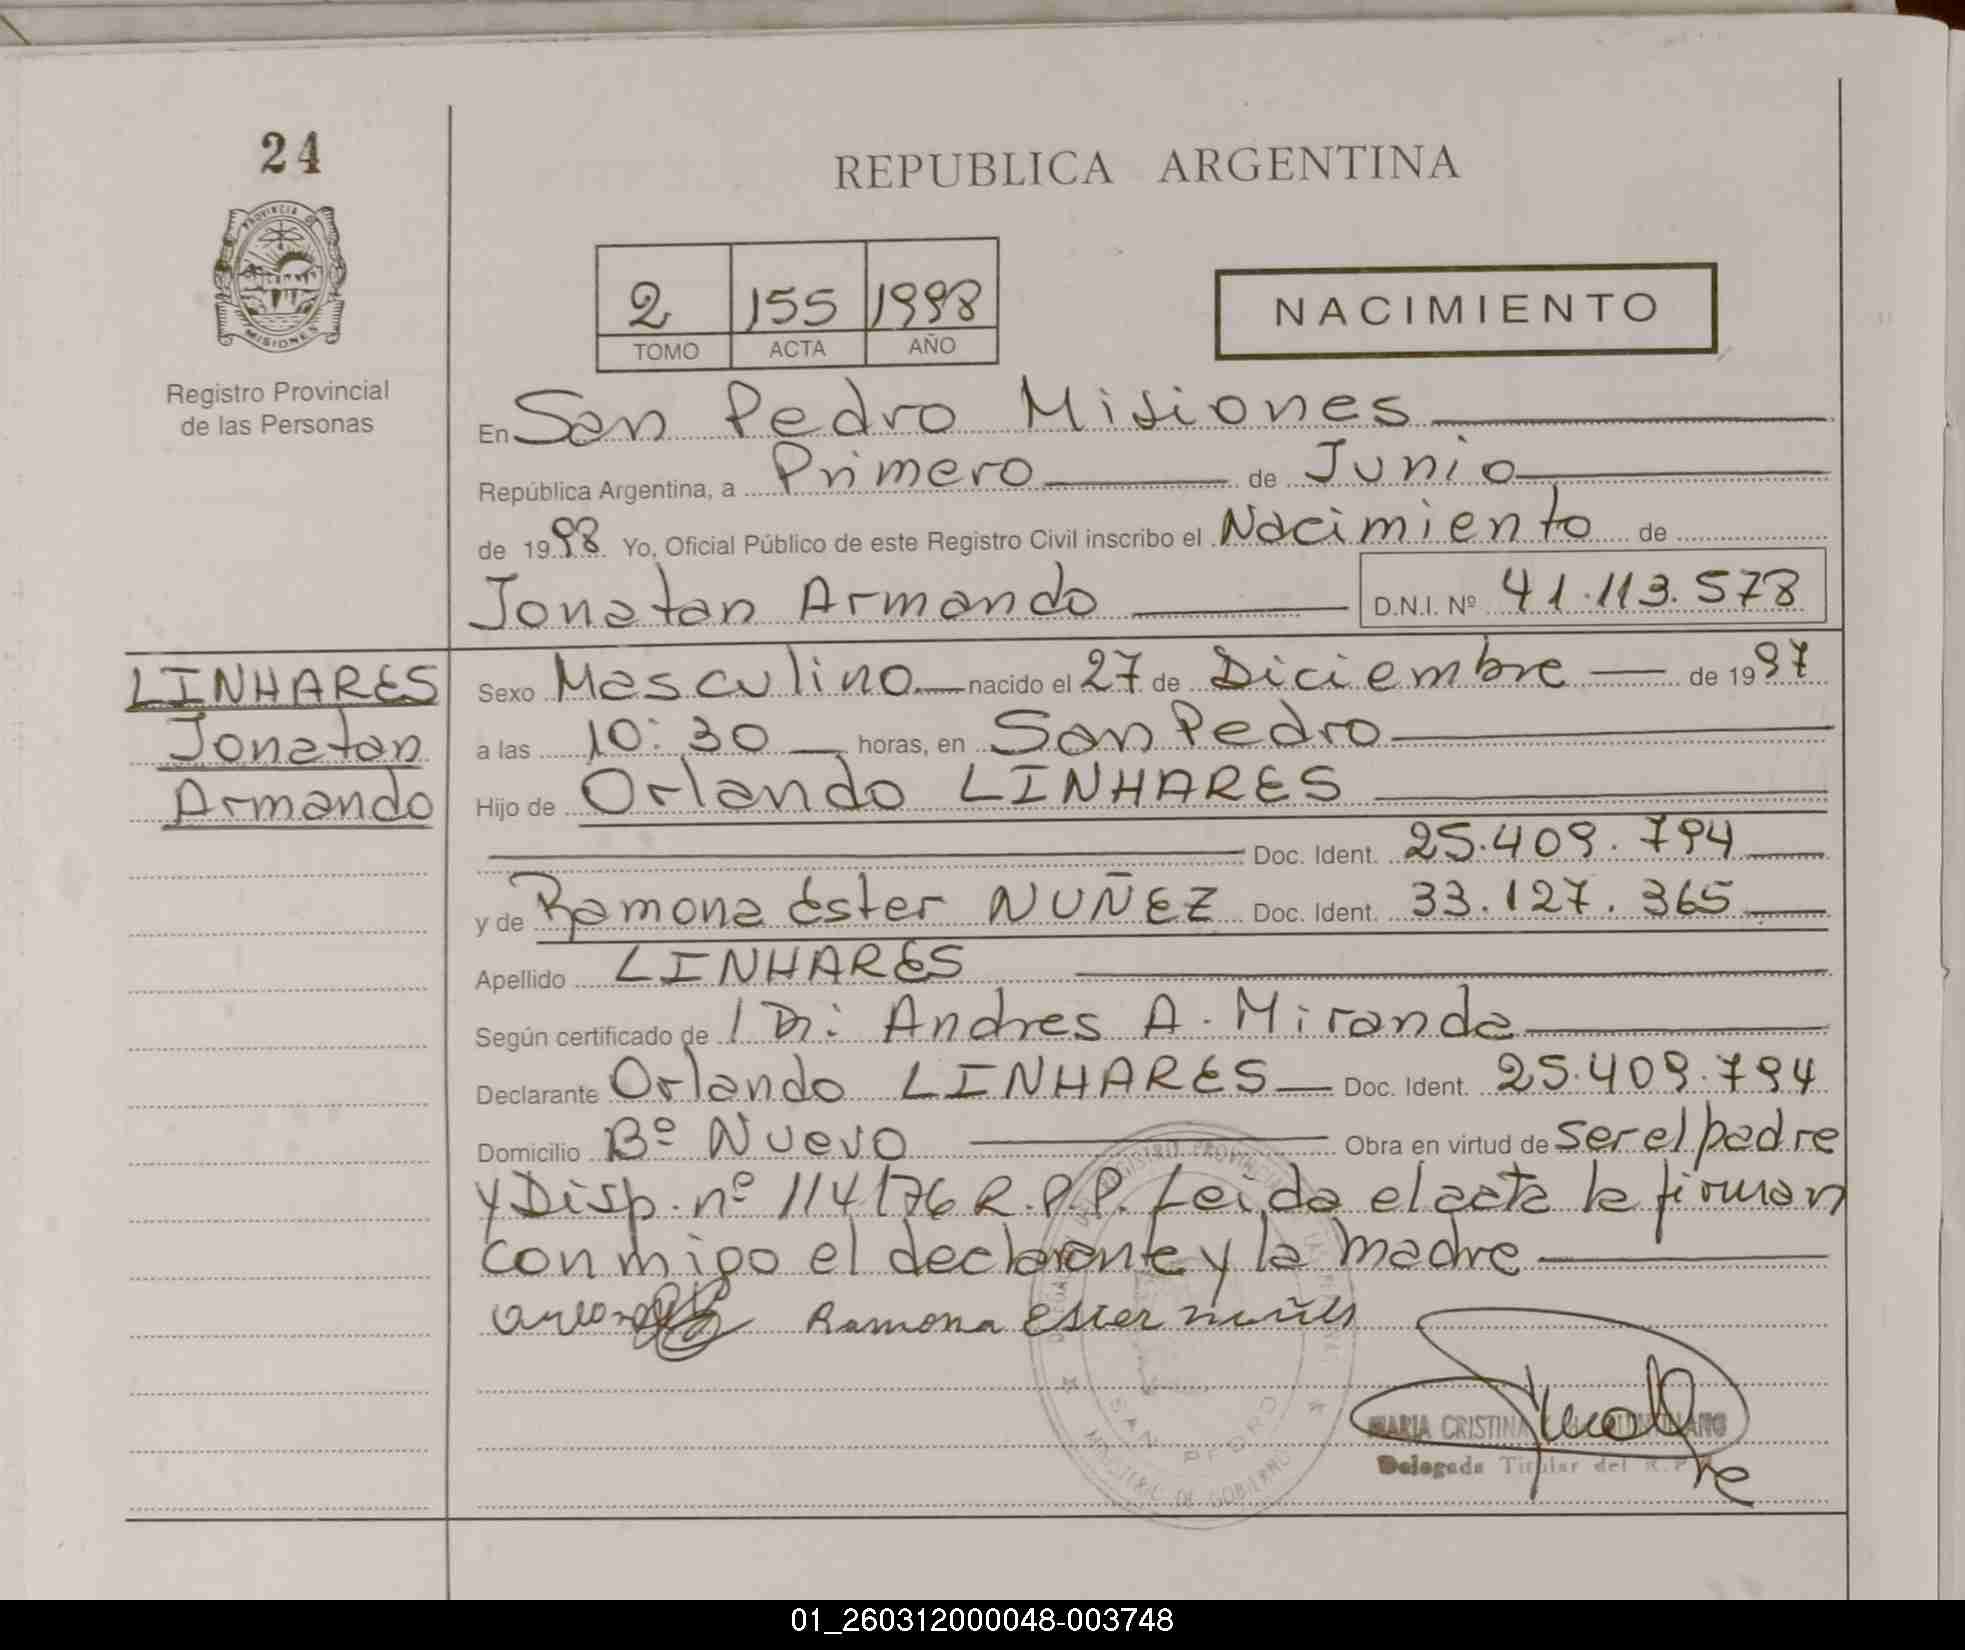 24
REPUBLICA ARGENTINA
PROVINCIA DE
MISIONES
2 155 1998
TOMO ACTA AÑO
NACIMIENTO
Registro Provincial
de las Personas
En San Pedro Misiones
República Argentina, a Primero de Junio
de 1998 Yo, Oficial Público de este Registro Civil inscribo el Nacimiento de
Jonatan Armando D.N.I. Nº 41.113.578
LINHARES
Jonatan
Armando
Sexo Masculino nacido el 27 de Diciembre de 1997
a las 10:30 horas, en San Pedro
Hijo de Orlando LINHARES
Doc. Ident. 25.409.794
y de Ramona Ester NUÑEZ Doc. Ident. 33.127.365
Apellido LINHARES
Según certificado de Dr: Andres A. Miranda
Declarante Orlando LINHARES Doc. Ident. 25.409.794
Domicilio Bº Nuevo Obra en virtud de ser el padre
y Disp. nº 114/76 R.P.P. Leida el acta la firman
conmigo el declarante y la madre
Ramona Ester
SAN PEDRO
MINISTERIO DE GOBIERNO
MARIA CRISTINA
Delegada Titular del R.P.
01_260312000048-003748